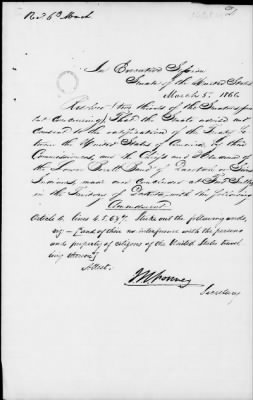 Rec'd 6th March
In Executive Session
Senate of the United States
March 5, 1866
Resolved (two thirds of the Senators present
concurring) That the Senate advise and
consent to the ratification of the Treaty be
tween the United States of America by their
Commissioners, and the Chiefs and Headmen of
the Lower Brulé Band of Dakota or Sioux
Indians, made and concluded at Fort Sully
in the Territory of Dakota, with the following
Amendment
Article 6. lines 4. 5. 6 & 7. Strike out the following words,
viz: and of their no interference with the persons
and property of citizens of the United States travel
ling thereon
Attest.
Secretary